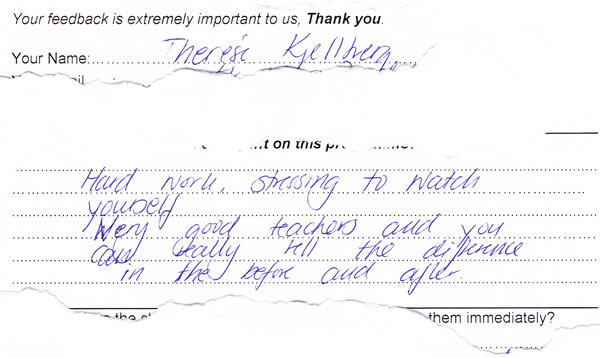 Your feedback is extremely important to us, Thank you.
Your Name: Therése Kjellberg
on this
Hard work, stressing to watch
yourself
Very good teachers and you
can really tell the difference
in the before and after.
them immediately?